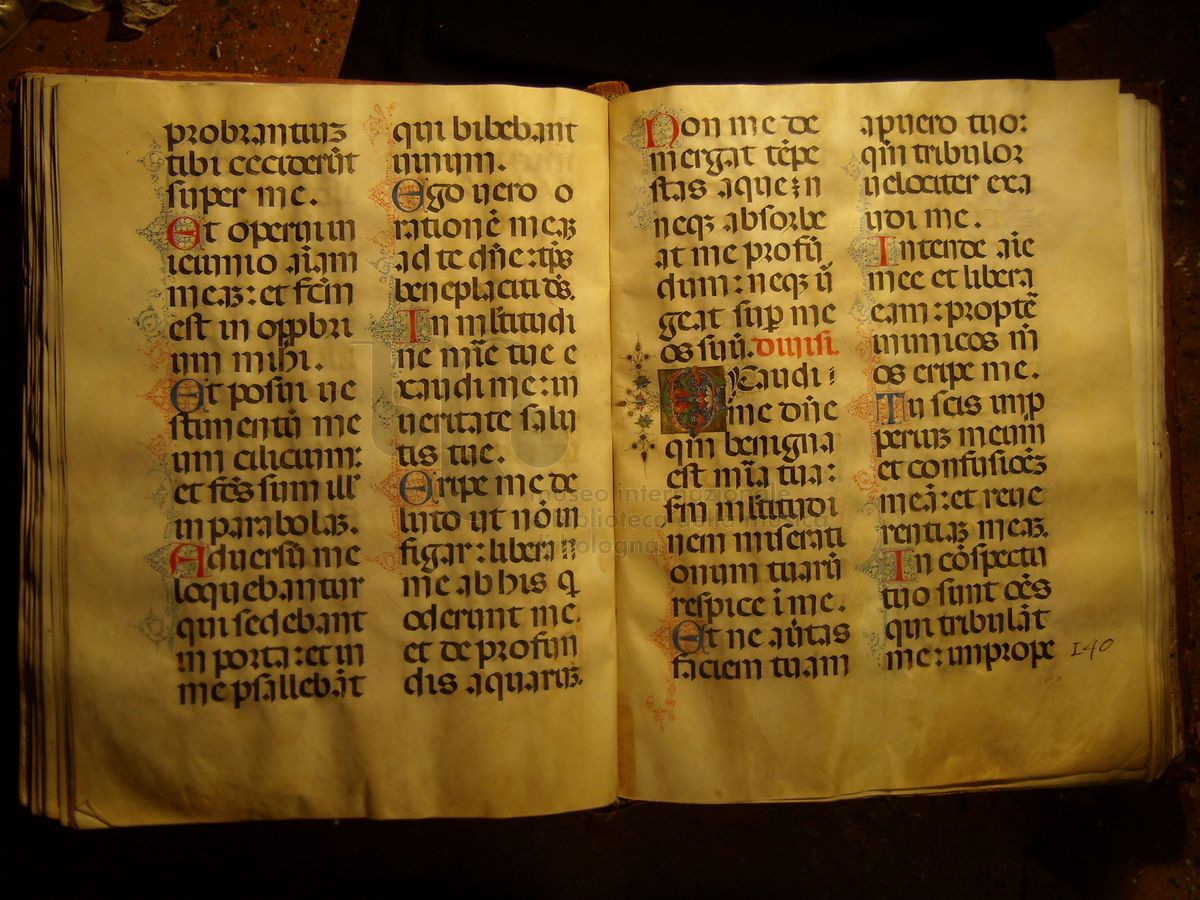 probrantiuʒ
tibi ceciderūt
super me.
Et operui in
ieiunio aīam
meaʒ: et fc̄m
est in oppbri
um mihi.
Et posui ve
stimentū me
um cilicium:
et fc̄s sum ill̄
in parabolaʒ.
Adversū me
loquebantur
qui sedebant
in porta: et in
me psallebāt
qui bibebant
vinum.
Ego vero o
rationē meaʒ
ad te dn̄e: tp̄s
beneplaciti ds̄.
In ml̄titudi
ne mīe tue e
xaudi me: in
veritate salu
tis tue.
Eripe me de
luto ut nō in
figar: libera
me ab his q̄
oderunt me.
et de profun
dis aquaruʒ.
Non me de
mergat tēpe
stas aque: n
neqʒ absorbe
at me profū
dum: neqʒ ū
geat sup me
os suū. divisi.
Exaudi
me dn̄e
qm̄ benigna
est mīa tua:
sm̄ ml̄titudi
nem miserati
onum tuarū
respice ī me.
Et ne av̄tas
faciem tuam
a puero tuo:
qm̄ tribulor
velociter exa
udi me.
Intende aīe
mee et libera
eam: proptē
inimicos m̄
os eripe me.
Tu scis imp
periuʒ meum
et confusiōeʒ
meā: et reve
rentiaʒ meaʒ.
In cōspectu
tuo sunt oēs
qui tribulāt
me: imprope
140
museo internazionale
biblioteca della musica
bologna